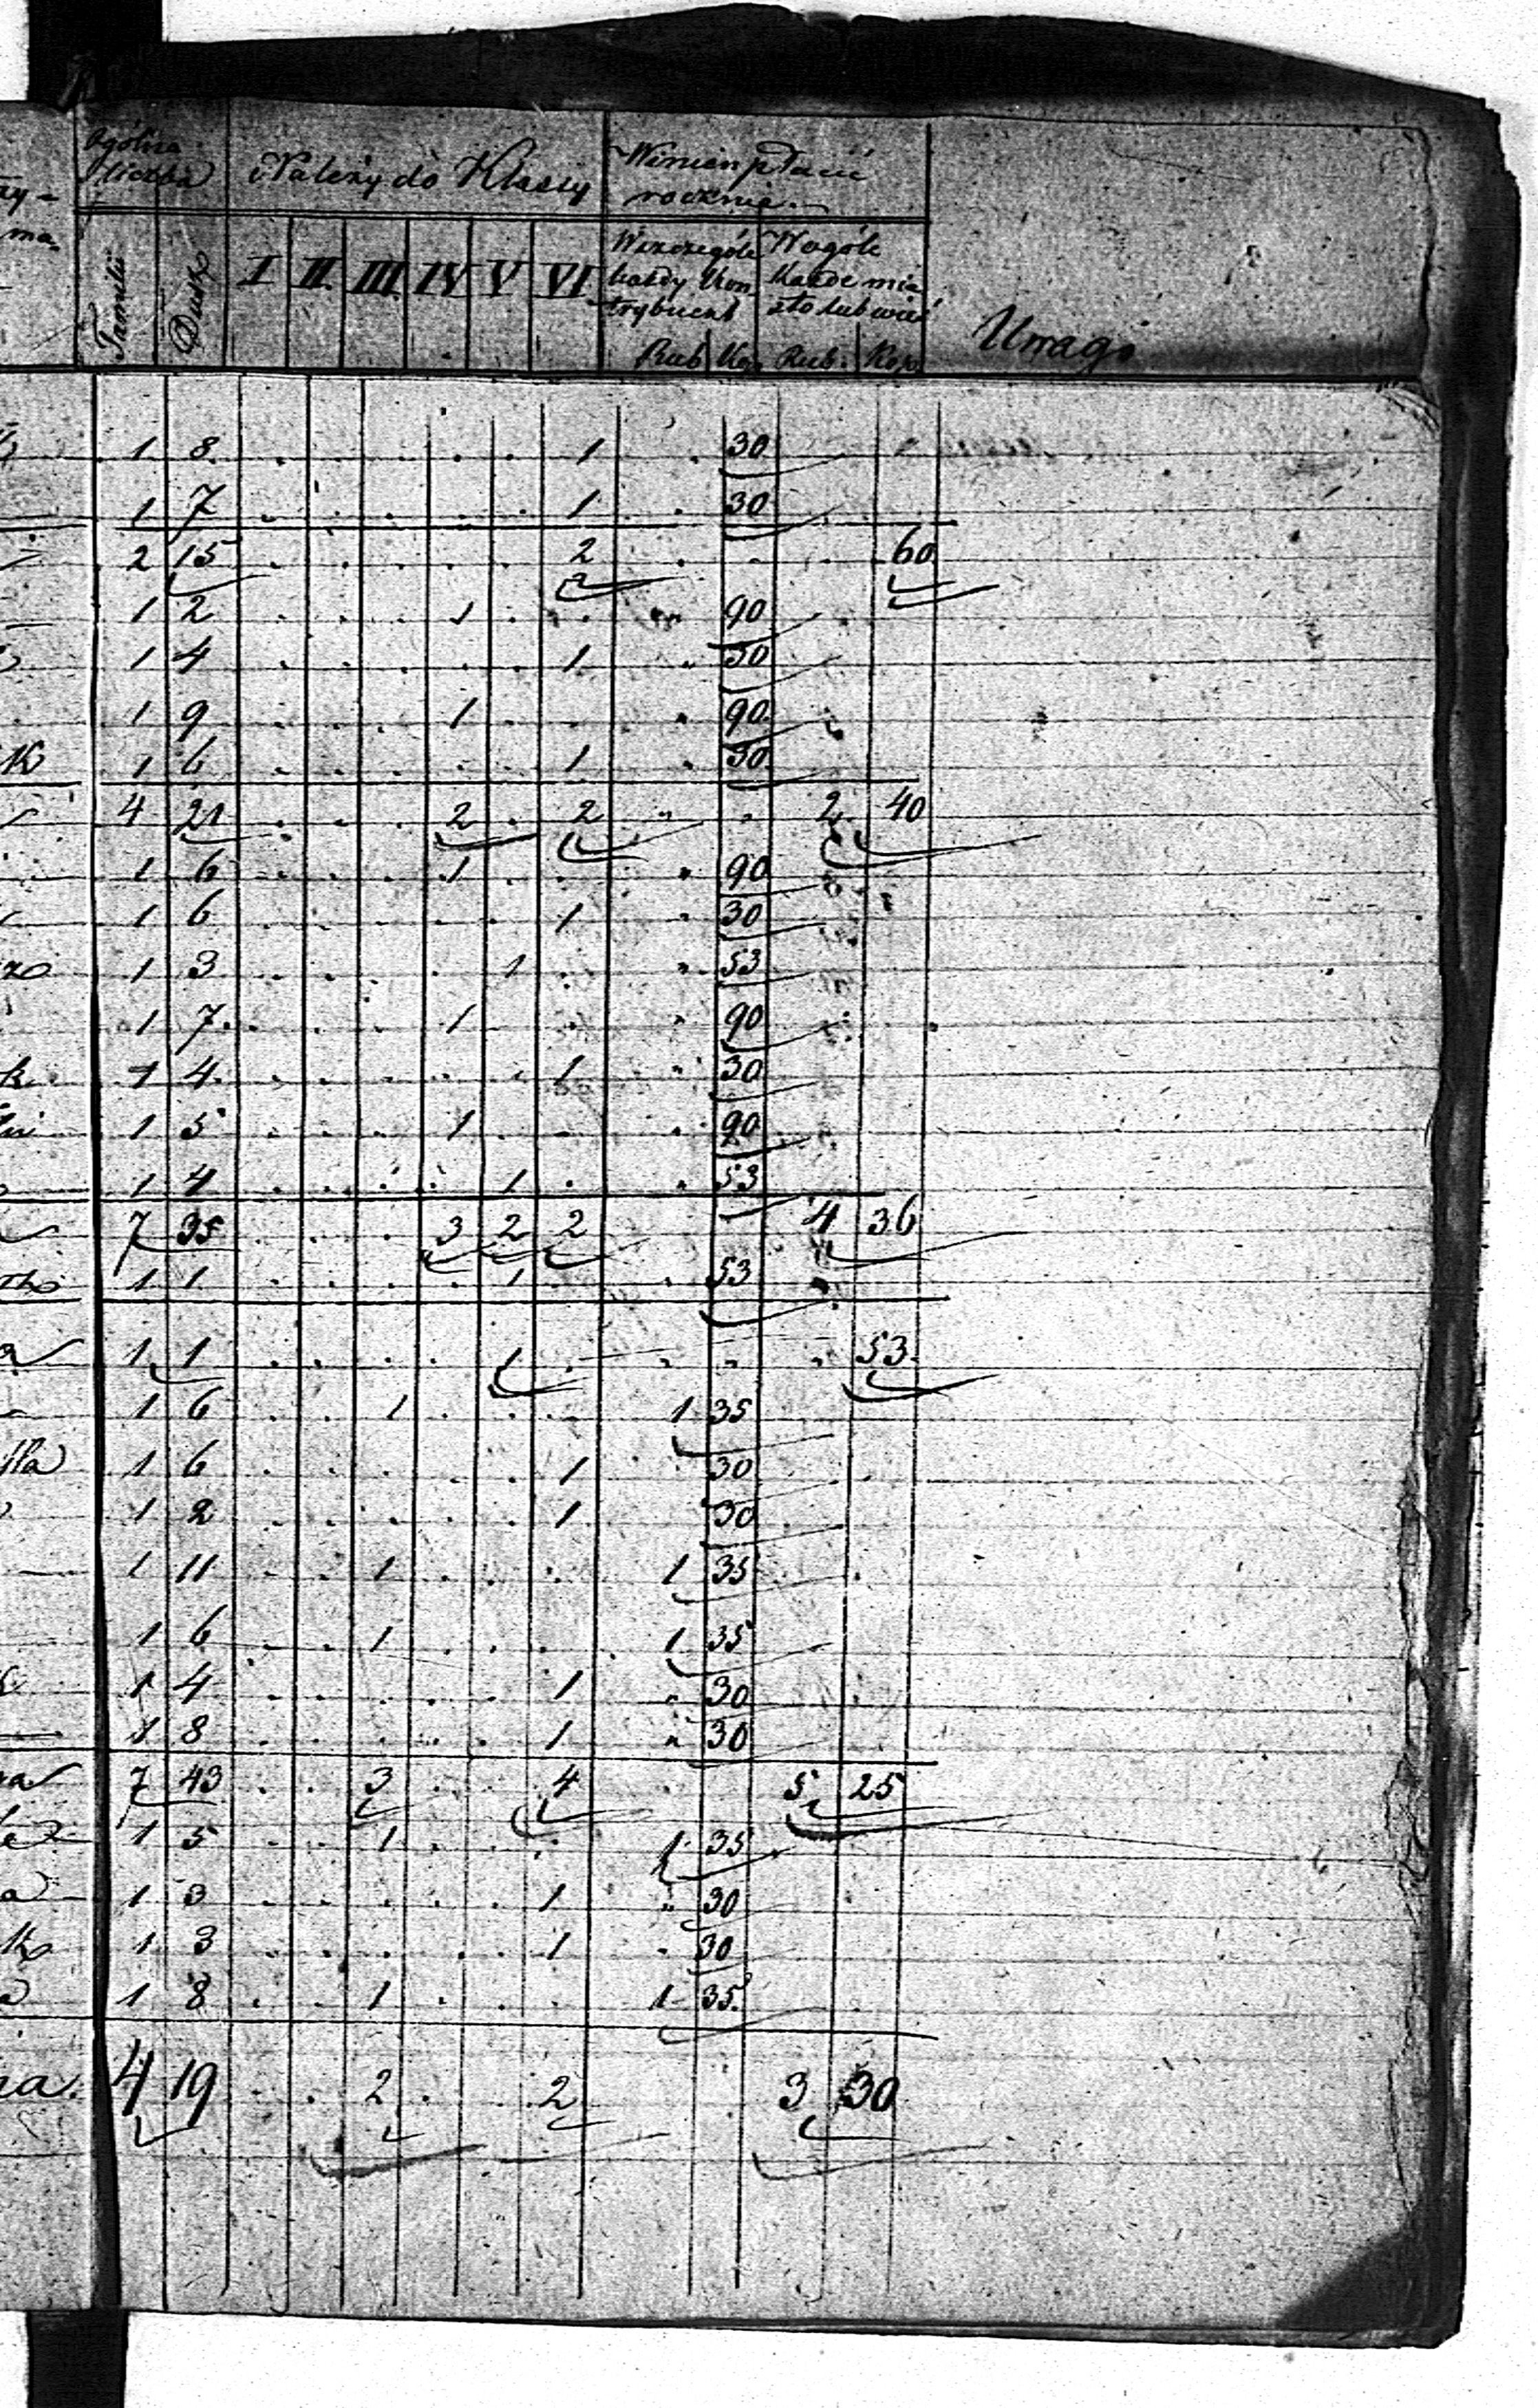 Ogólna liczba | Należy do Klassy | Winien płacić rocznie
Familii | Dusz | I | II | III | IV | V | VI | W szczególe każdy Kontrybuent Rub. Kop. | W ogóle każde miasto lub wieś Rub. Kop. | Uwagi
1 8 . . . . . 1 . 30
1 7 . . . . . 1 . 30
2 15 . . . . . 2 . . . 60
1 2 . . . 1 . . " 90
1 4 . . . . . 1 " 30
1 9 . . . 1 . . " 90
k 1 6 . . . . . 1 " 30
4 21 . . . 2 . 2 " " 2 40
1 6 . . . 1 . . " 90
1 6 . . . . . 1 " 30
1 3 . . . . 1 . " 53
1 7 . . . 1 . . " 90
k 1 4 . . . . . 1 " 30
1 5 . . . 1 . . " 90
1 4 . . . . 1 . " 53
7 35 . . . 3 2 2 4 36
1 1 . . . . 1 . 53
1 1 . . . . 1 . " " " 53
1 6 . . 1 . . . 1 35
1 6 . . . . . 1 . 30
1 2 . . . . . 1 30
1 11 . . 1 . . . 1 35
1 6 . . 1 . . . 1 35
1 4 . . . . . 1 " 30
1 8 . . . . . 1 " 30
7 43 . . 3 . . 4 5 25
1 5 . . 1 . . . 1 35
a 1 3 . . . . . 1 " 30
1 3 . . . . . 1 . 30
1 8 . . 1 . . . 1 35
na. 4 19 . . 2 . . 2 . 3 30